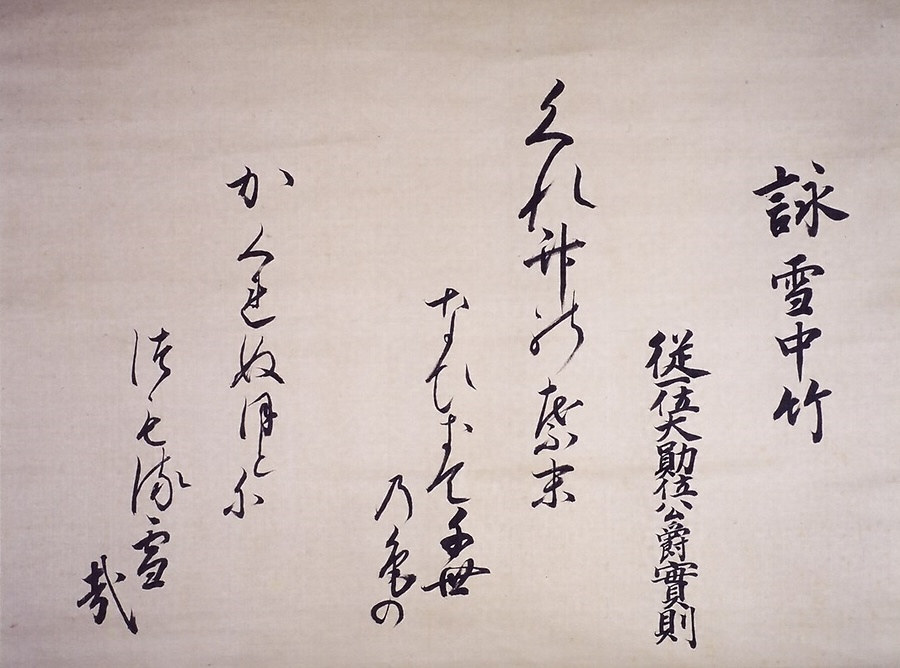 詠雪中竹
従一位大勲位公爵實則
くれ竹の葉末
なひきて千世
乃色の
かくれぬほとに
つもる雪
哉